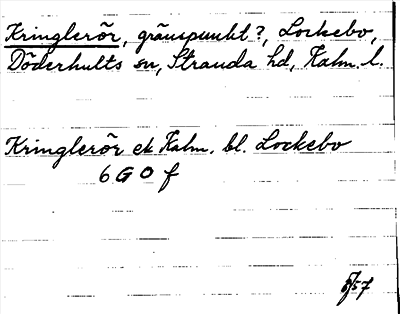 Kringlerör, gränspunkt?, Lockebo,
Döderhults sn, Stranda hd, Kalm. l.
Kringlerör ek Kalm. bl. Lockebo
6 G O f
8/57